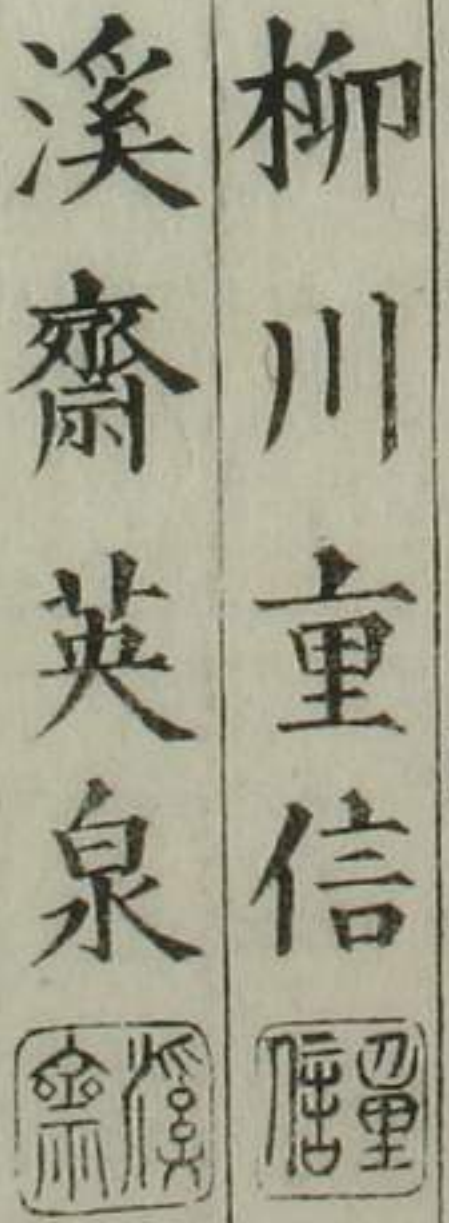 柳川重信
重信
溪齋英泉
溪齋